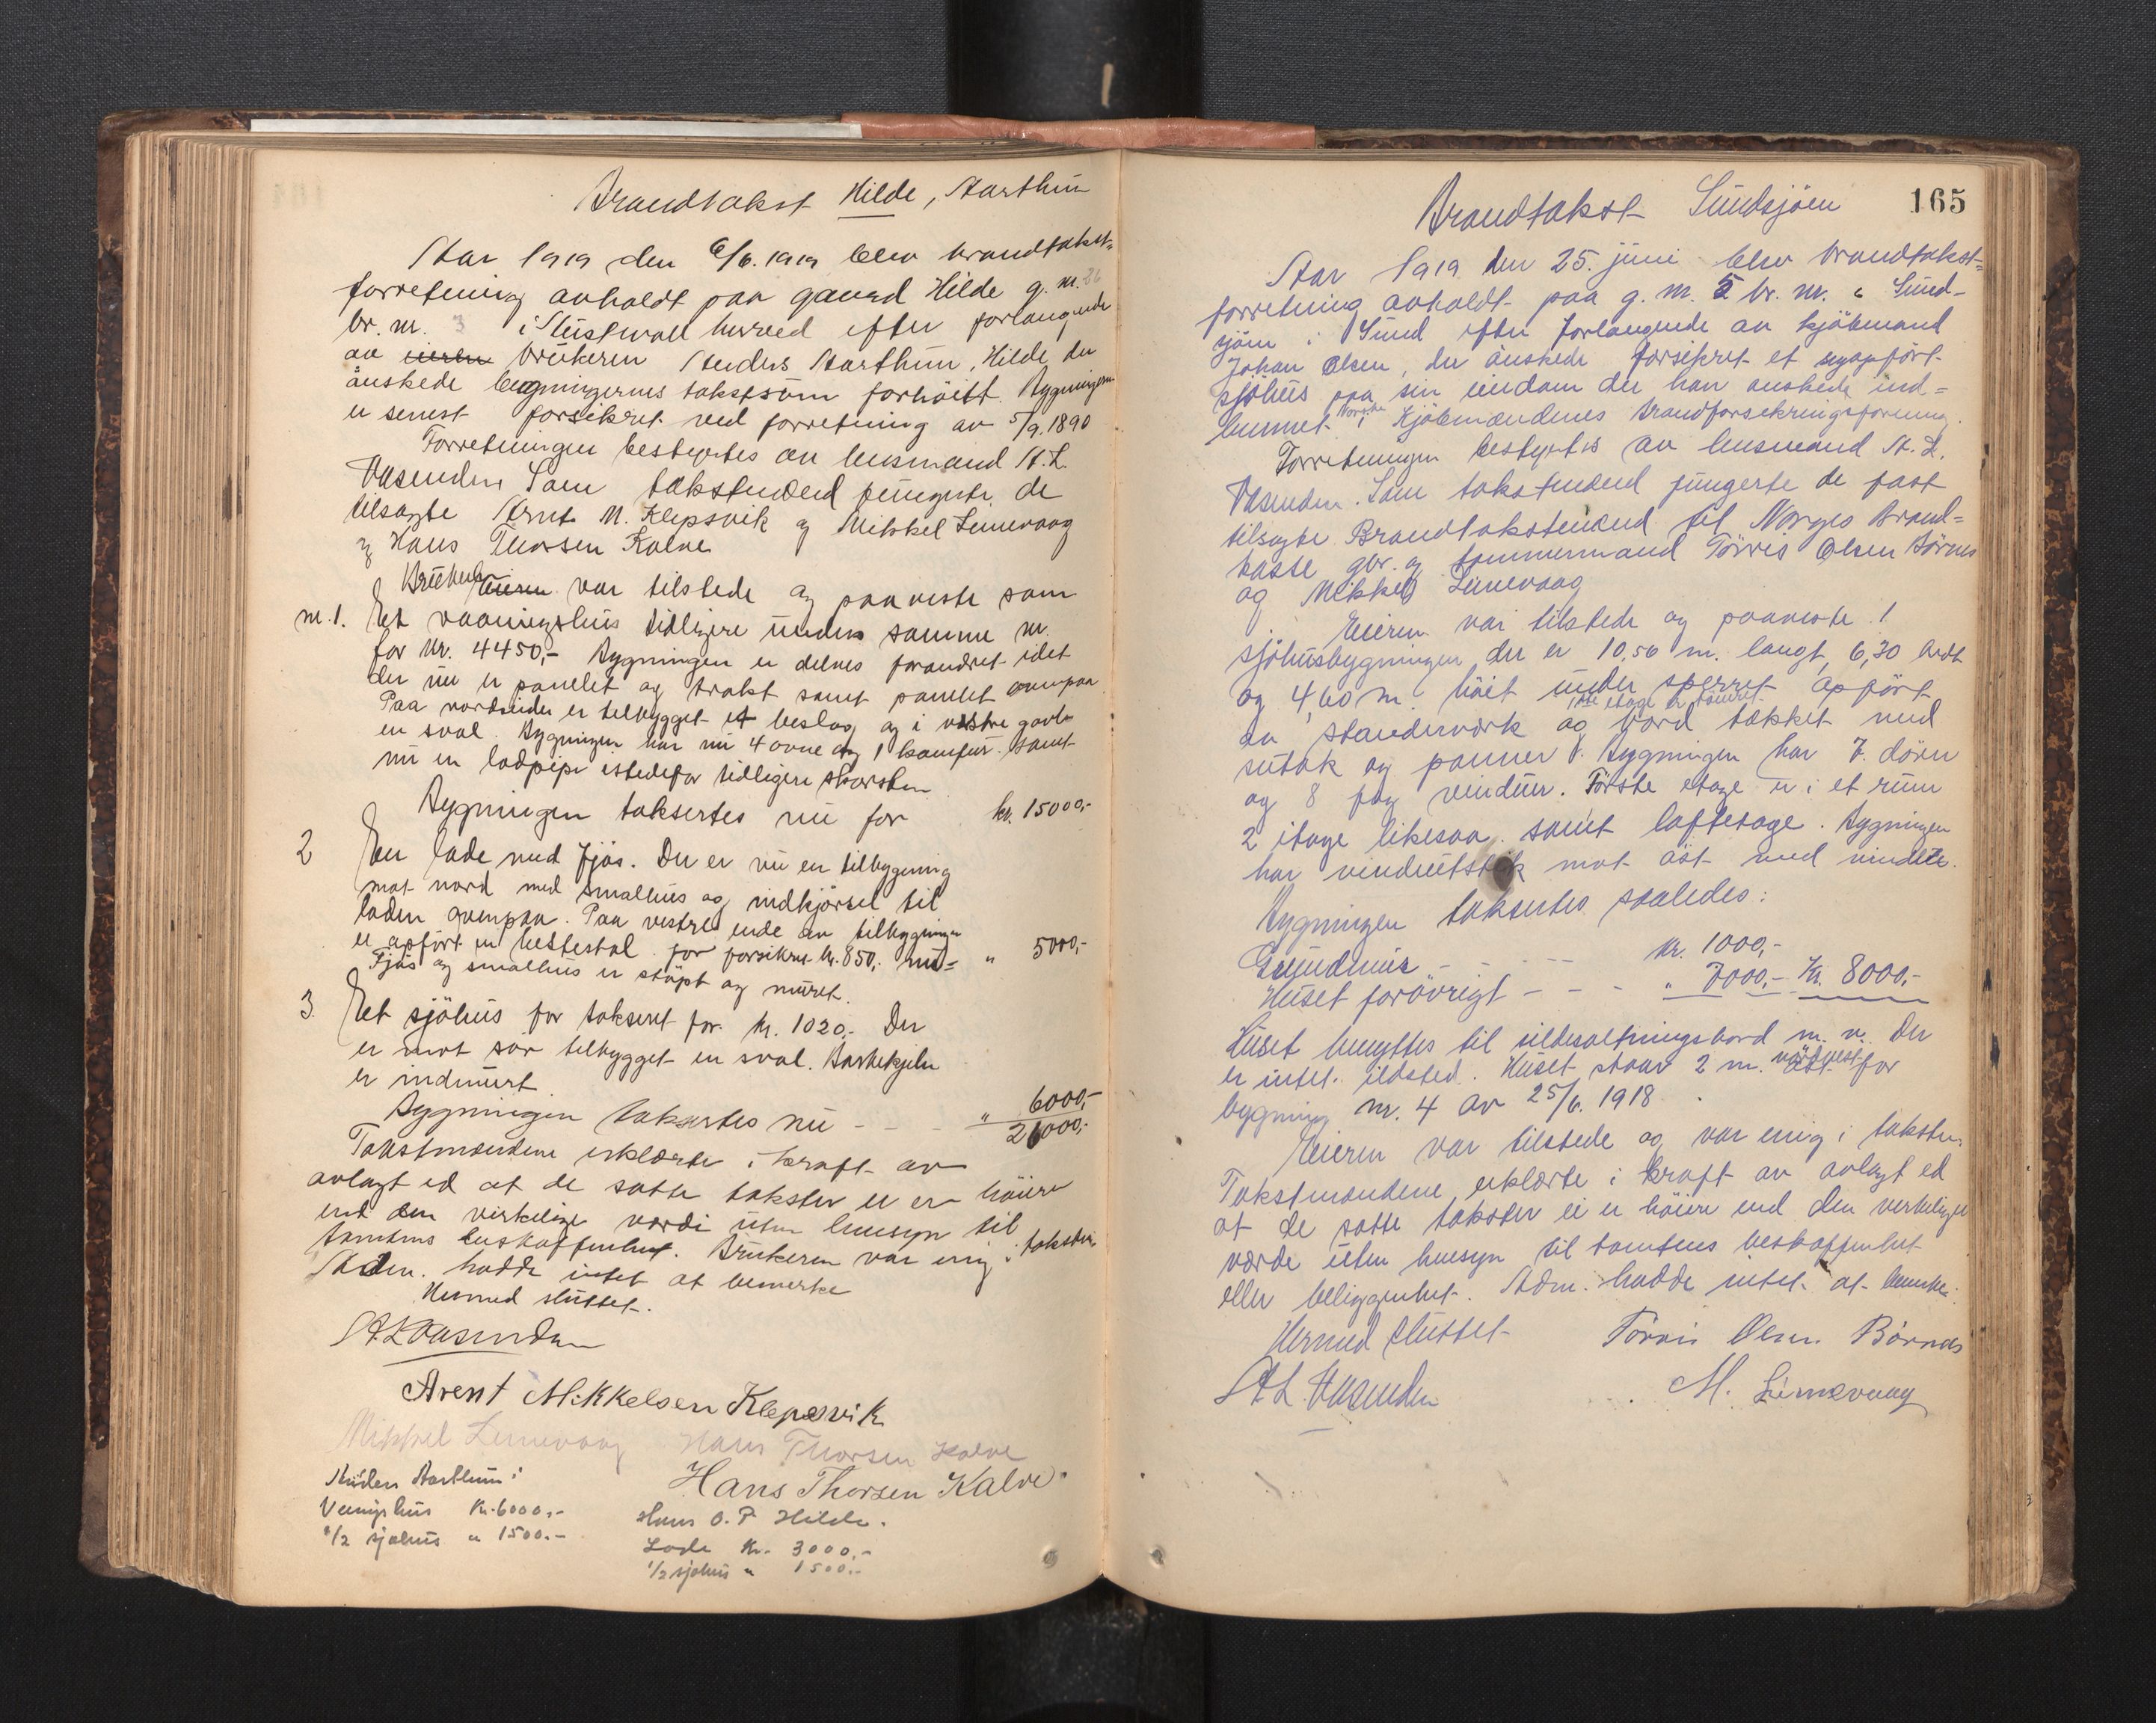 Brandtakst Hilde, Aarthun
Aar 1919 den 6/6. 1919 blev brandtakst-
forretning avholdt paa gaard Hilde g. nr. 26
br. nr. 3 i Austevoll herred efter forlangende
av eieren brukeren Anders Aarthun, Hilde, der
önskede bygningernes takstsum forhöiet. Bygningen
er senest forsikret ved forretning av 5/9. 1890
Forretningen bestyrtes av lensmand A. L.
Vasenden Som takstmænd fungerte de
tilsagte Arnt M. Klepsvik og Mikkel Linnevaag
og Hans Thorsen Kalve
Brukeren Eieren var tilstede og paaviste som
nr. 1. Et vaaningshus tidligere under samme nr.
for kr. 4450,- Bygningen er delvis forandret idet
der nu er panelet og trækt samt panelet ovenpaa
Paa nordsiden er tilbygget et beslag og i vestre gavl
en sval. Bygningen har nu 4 ovne og 1 komfur samt
nu en lodpipe istedefor tidligere skorsten
Bygningen taksertes nu for kr. 15000,-
2 En lade med fjös. Der er nu en tilbygning
mot nord med smalhus og indkjörsel til
laden ovenpaa. Paa vestre ende av tilbygningen
er opfört en hestestal. för forsikret kr. 850,- nu = " 5000,-
Fjös og smalhus er stöpt og muret.
3. Et sjöhus för takseret for kr. 1020,- Der
er mot sör tilbygget en sval. Barkekjelen
er indmurt
Bygningen taksertes nu - - - " 6000,-
26000,-
Takstmændene erklærte i kraft av
avlagt ed at de satte takster ei er höiere
end den virkelige værdi uten hensyn til
tomtens beskaffenhet. Brukeren var enig i taksten
Adm. hadde intet at bemerke
Hermed sluttet.
A L Vasenden
Arent Mikkelsen Klepsvik
Mikkel Linnevaag Hans Thorsen Kalve
Hans Thorsen Kalve
Anders Aarthun:
Vaanigshus Kr. 6000.-
1/2 sjøhus " 1500.-
Hans O. P. Hilde.
Lade Kr. 3000.-
1/2 sjøhus " 1500.-
165
Brandtakst Sundsjöen
Aar 1919 den 25. juni blev brandtakst-
forretning avholdt paa g. nr. 5 br. nr. 6 Sund-
sjöen i Sund efter forlangende av kjöbmand
Johan Olsen, der önskede forsikret et nyopfört
sjöhus paa sin eiendom der han önskede ind-
lemmet i Norske Kjöbmændenes Brandforsekringsforening
Forretningen bestyrtes av lensmand A. L.
Vasenden. Som takstmænd fungerte de fast
tilsagte Brandtakstmænd til Norges Brand-
kasse gbr. og tömmermand Törris Olsen Börnes
og Mikkel Linnevaag
Eieren var tilstede og paaviste 1
sjöhusbygningen der er 10,56 m. langt, 6,30 bredt
og 4,60 m. höit under sperret opfört
1ste etage er tömret
av standerværk og bord tækket med
sutak og panner. Bygningen har 7 dörer
og 8 fag vinduer. Förste etage er i et rum
2 etage likesaa. samt loftetage. Bygningen
har vindeutstik mot öst med vindue.
Bygningen taksertes saaledes:
Grundmur - - - - kr. 1000,-
Huset forövrigt - - - " 7000,- Kr. 8000,-
Huset benyttes til sildesaltningsbord m. v. Der
er intet ildsted. Huset staar 2 m. öst nordvest for
bygning nr. 4 av 25/6. 1918
Eieren var tilstede og var enig i taksten.
Takstmændene erklærte i kraft av avlagt ed
at de satte takster ei er höiere end den verkelige
værde uten hensyn til tomtens beskaffenhet
eller beliggenhet. Adm. hadde intet at bemerke.
Hermed sluttet Törris Olsen Börnes
A L. Vasenden M. Linnevaag